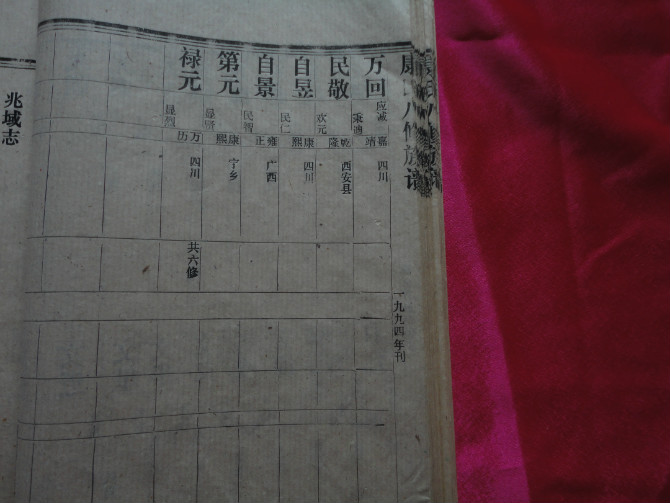 康氏八修族谱
一九九四年刊
万回
应诚
嘉靖
四川
民敬
秉迪
乾隆
西安县
自昱
欢元
康熙
四川
自景
民仁
雍正
广西
第元
民智
康熙
宁乡
禄元
万历
四川
共六修
兆域志